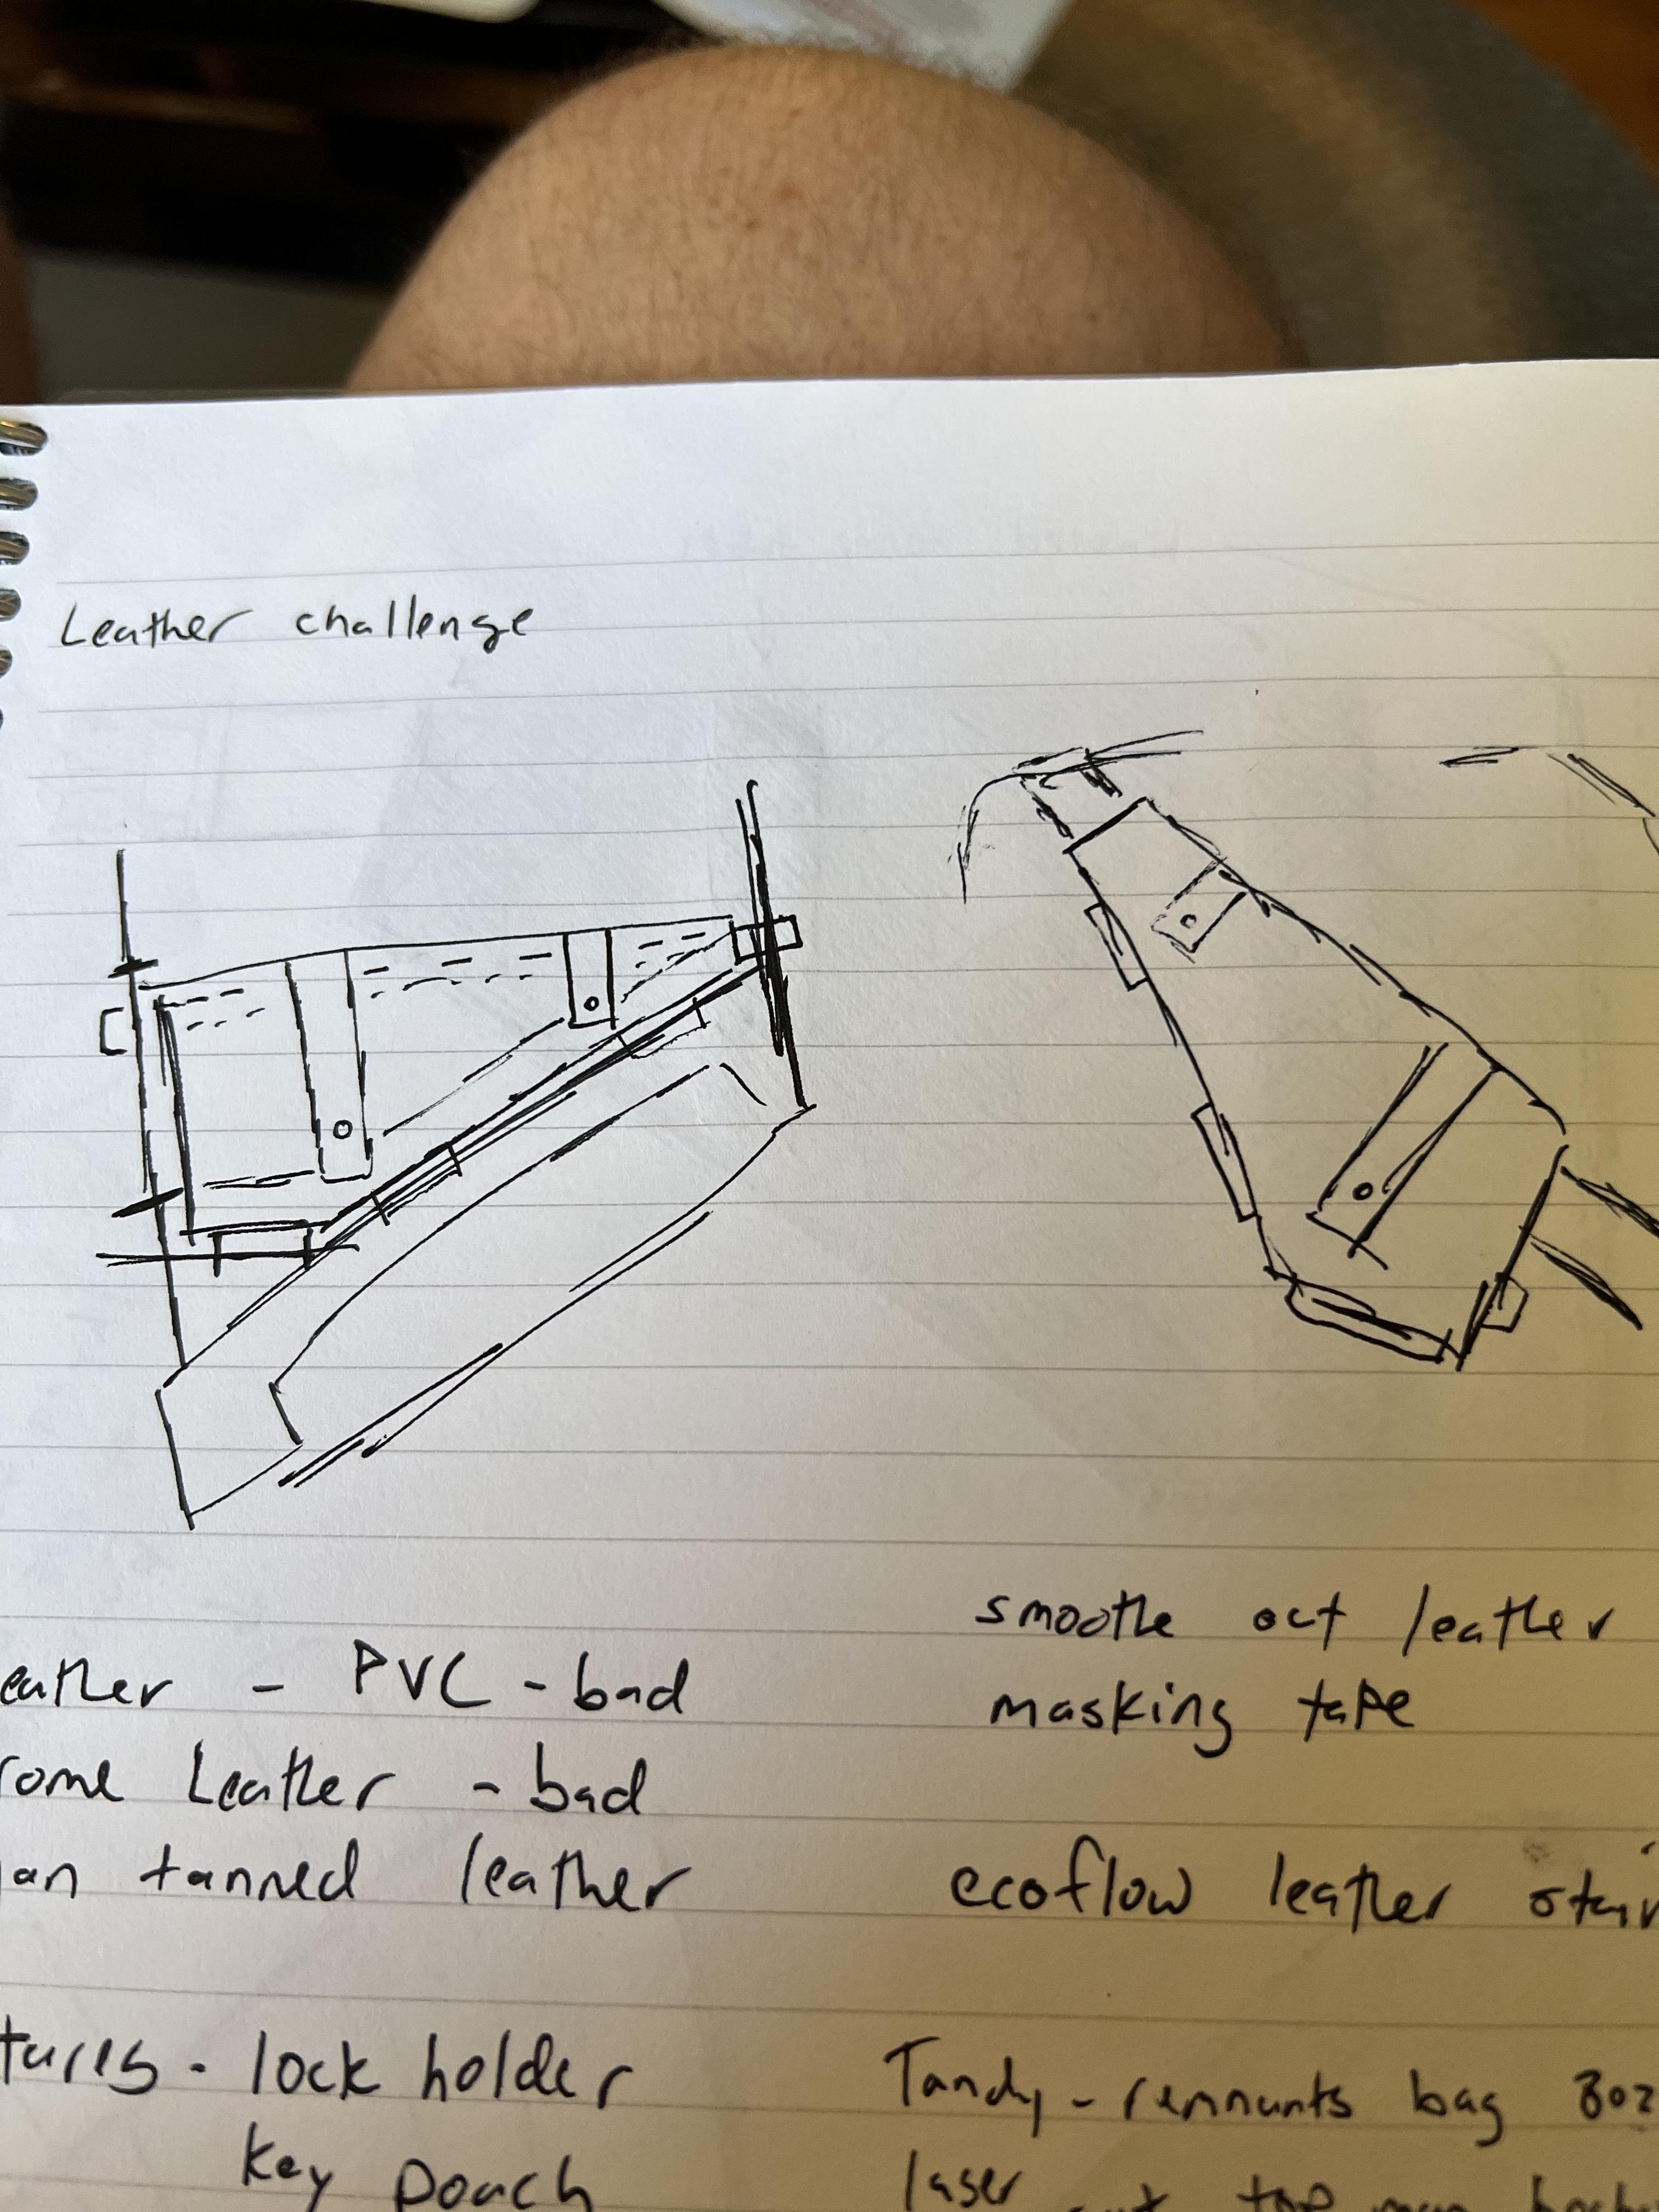 Leather challenge
eather - PVC - bad
rome Leather - bad
an tanned leather
tures - lock holder
key pouch
smoothe out leather
masking tape
ecoflow leather stain
Tandy - remnants bag 8oz
laser cut top